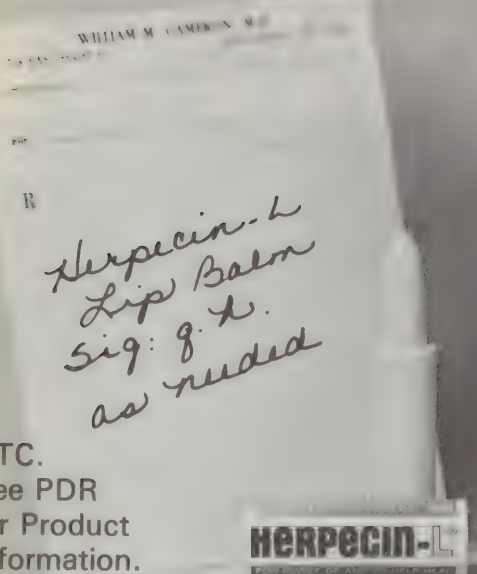 WILLIAM M. CAMERON, M.D.
FOR
R
Herpecin-L
Lip Balm
Sig: q.h.
as needed
TC.
ee PDR
r Product
formation.
HERPECIN-L